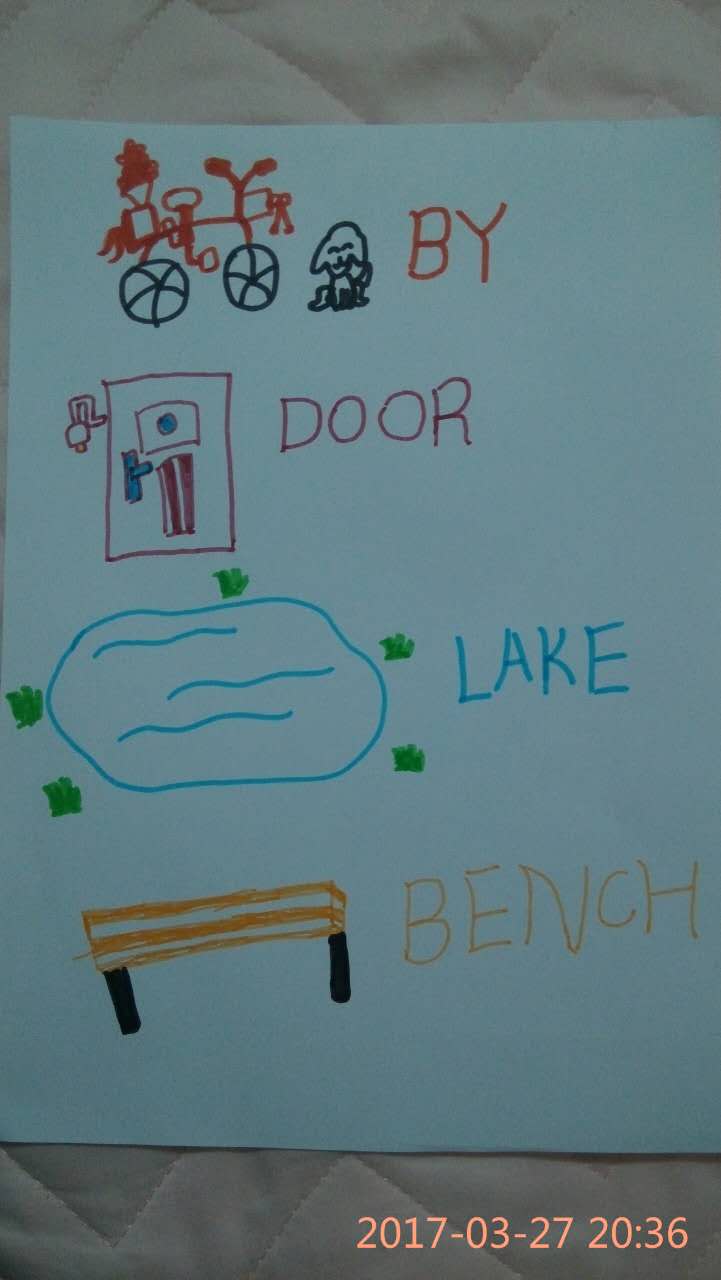 BY
DOOR
LAKE
BENCH
2017-03-27 20:36